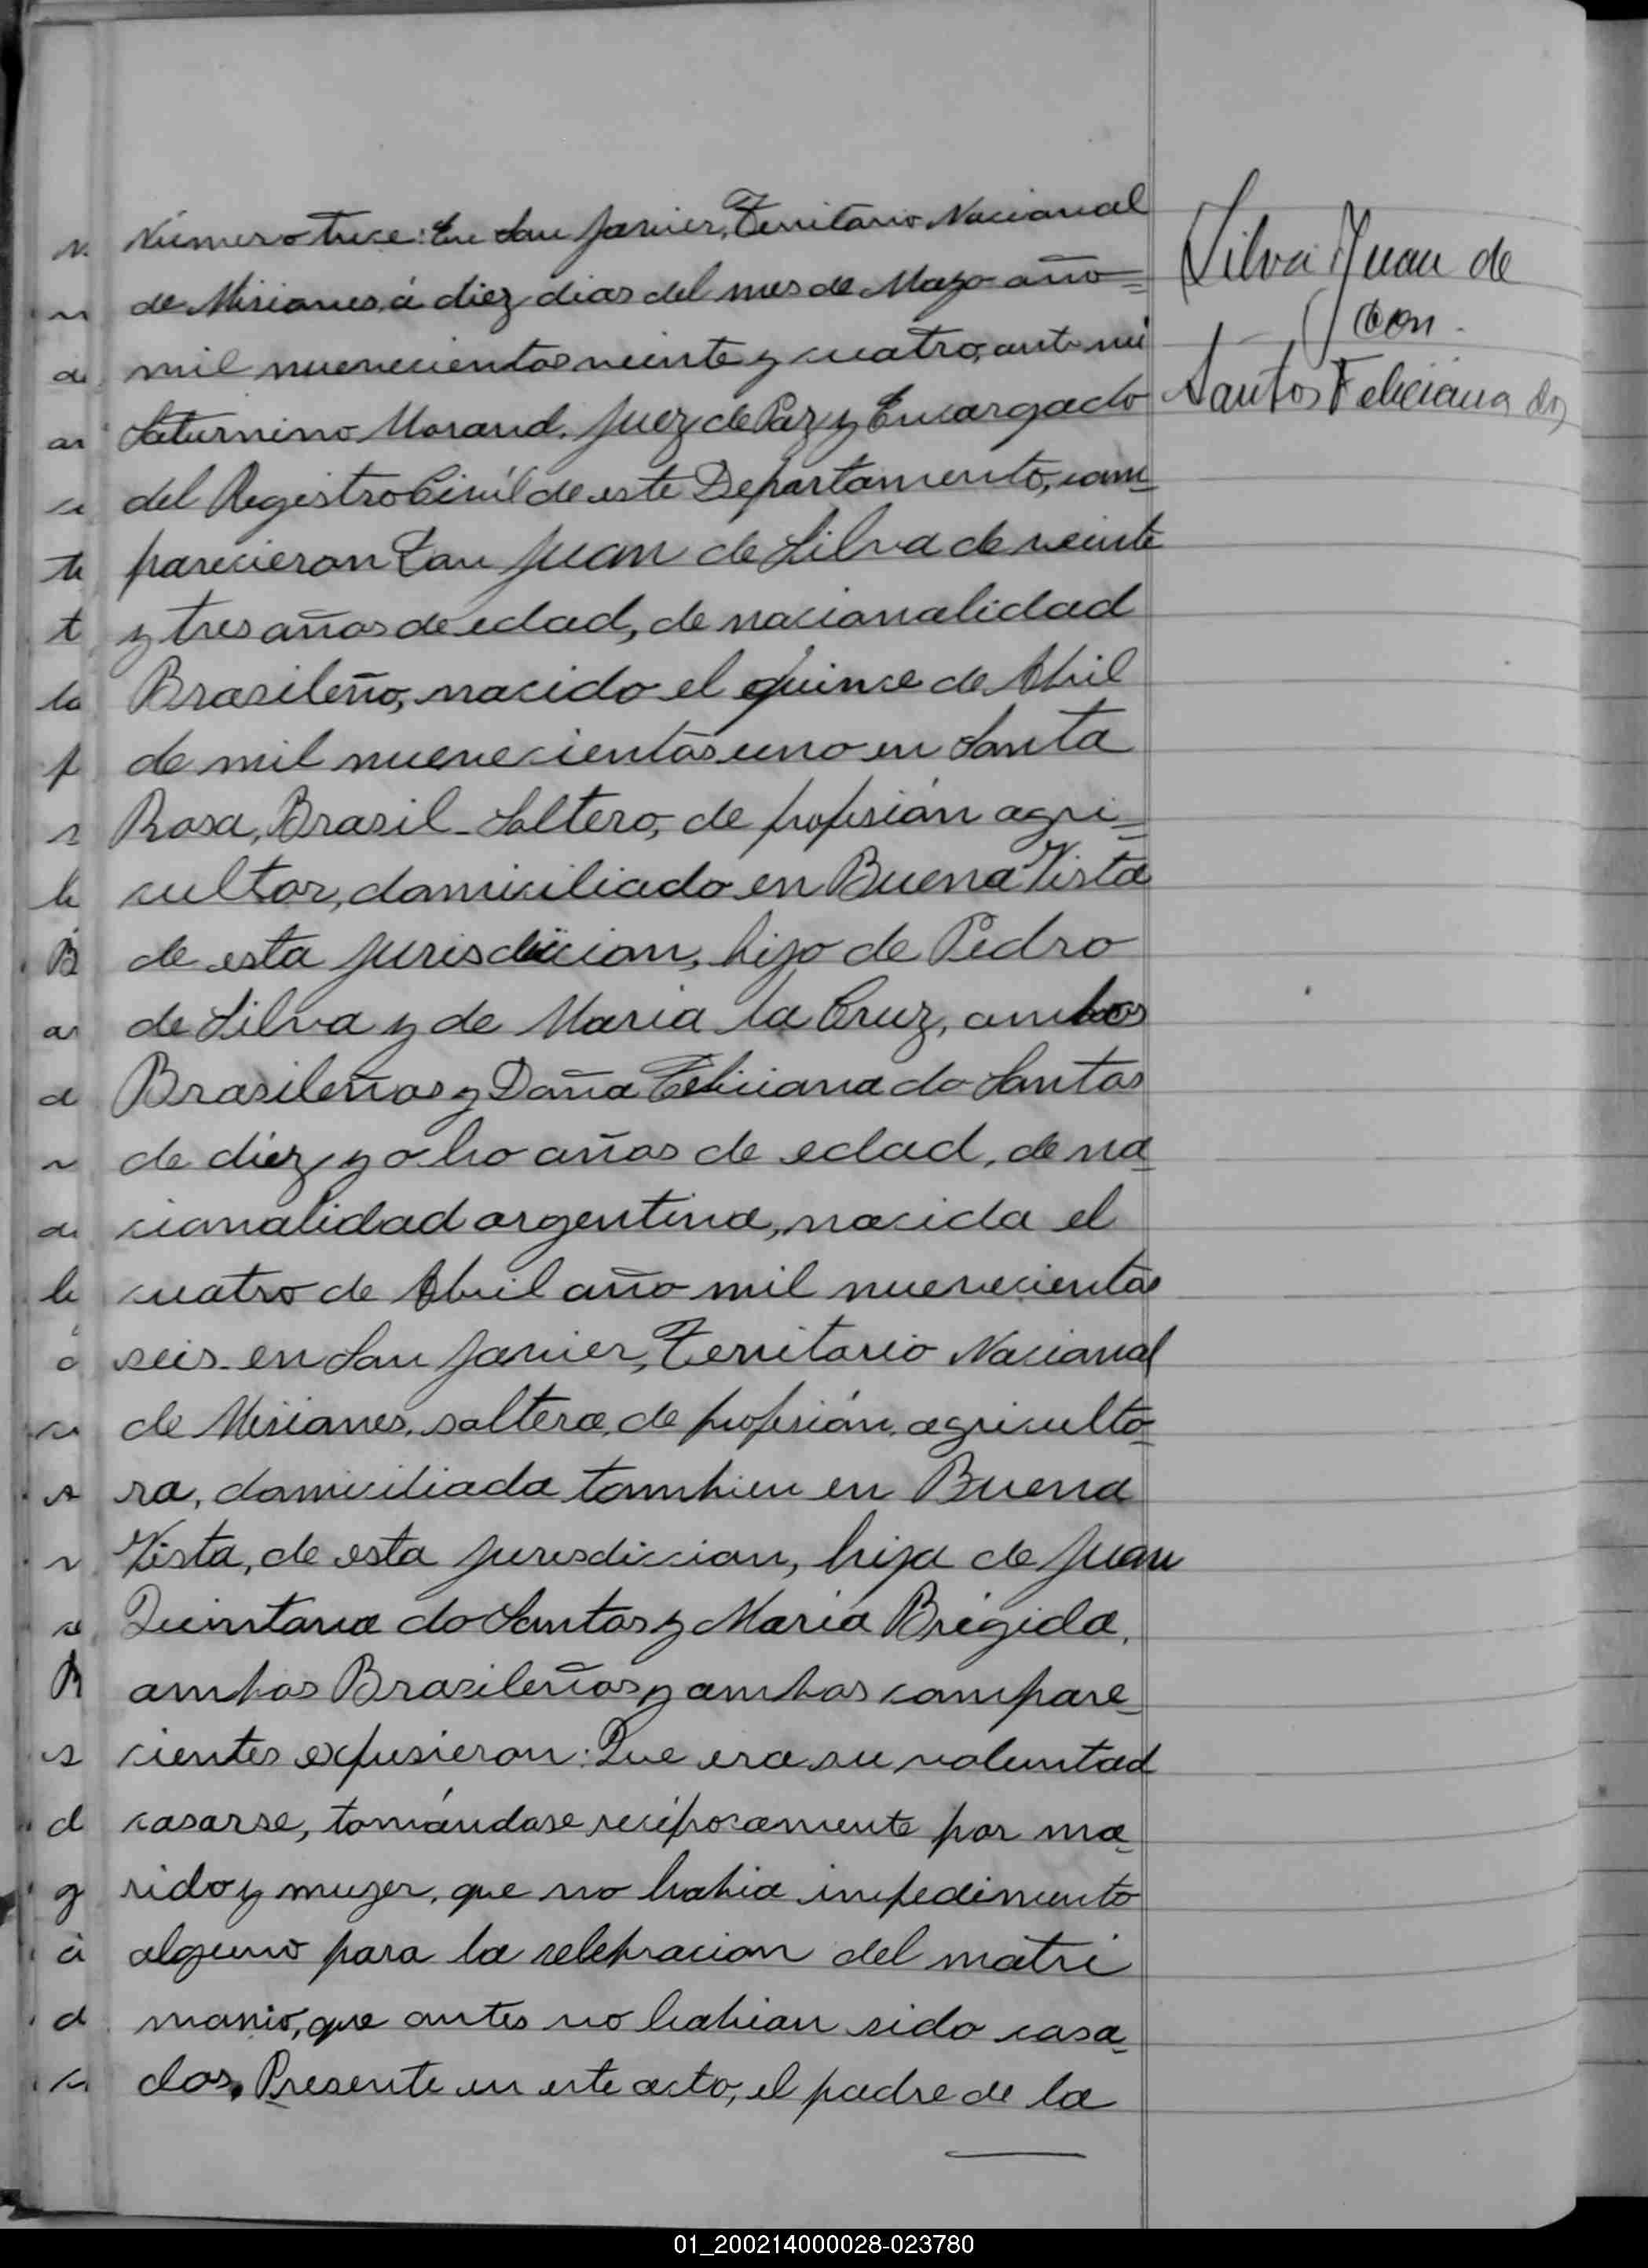 Número trece: En San Javier, Territorio Nacional
de Misiones, á diez dias del mes de Mayo año=
mil nuevecientos veinte y cuatro, ante mi
Saturnino Morand. Juez de Paz y Encargado
del Registro Civíl de este Departamento, com=
parecieron Don Juan de Silva de veinte
y tres años de edad, de nacionalidad
Brasileño, nacido el quince de Abril
de mil nuevecientos uno en Santa
Rosa, Brasil - Soltero, de profesión agri=
cultor, domiciliado en Buena Vista
de esta jurisdiccion, hijo de Pedro
de Silva y de Maria la Cruz, ambos
Brasileños y Doña Feliciana do Santos
de diez y ocho años de edad, de na
cionalidad argentina, nacida el
cuatro de Abril año mil nuevecientos
seis en San Javier, Territorio Nacional
de Misiones, soltera, de profesión, agriculto=
ra, domiciliada tambien en Buena
Vista, de esta jurisdiccion, hija de Juan
Quintana do Santos y Maria Brígida,
ambos Brasileños y ambos compare
cientes expusieron: Que era su voluntad
casarse, tomándose recíprocamente por ma
rido y mujer, que no habia impedimento
alguno para la celebracion del matri
monio, que antes no habian sido casa
dos. Presente en este acto, el padre de la
Silva Juan de
con
Santos Feliciana do
01_200214000028-023780